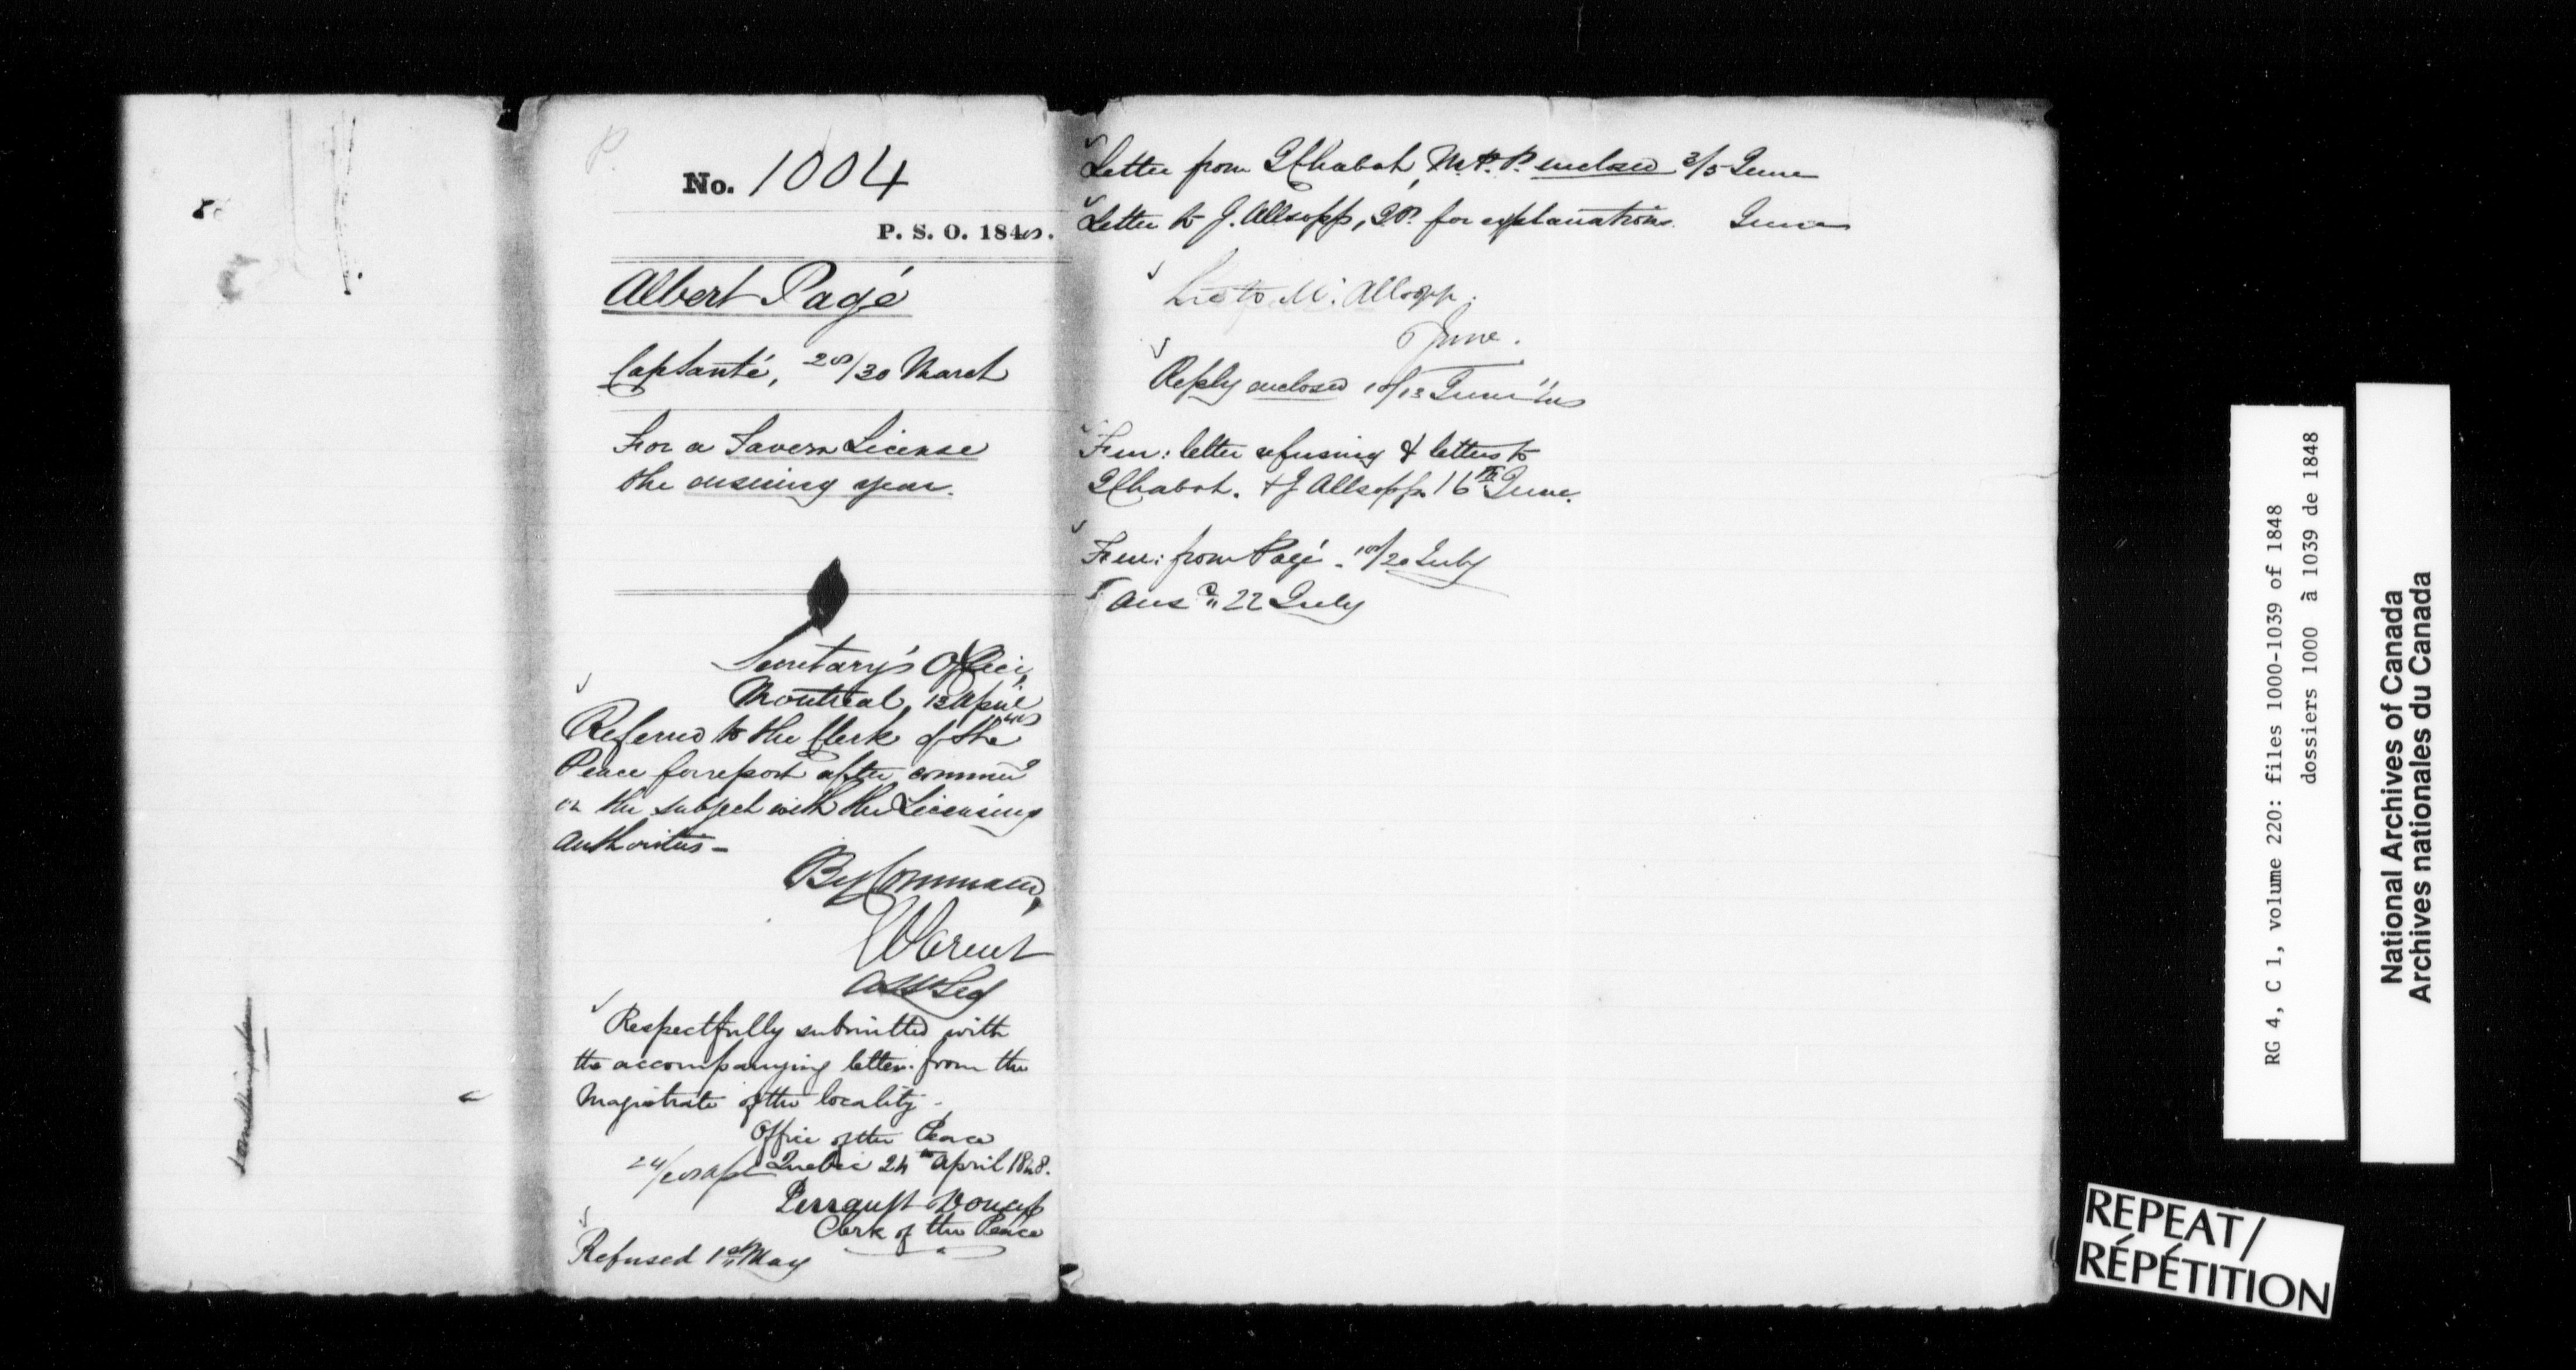 No. 1004
P. S. O. 1848.
Albert Pagé
CapSanté, 28/30 March
For a Tavern License
the ensuing year.
Secretary's Office,
Montreal, 13 April
48
Referred to the Clerk of the
Peace for report after commg
on the subject with the Licensing
authorities —
By Command,
E Parent
Asst Secy
Respectfully submitted with
the accompanying letter from the
Magistrate of the locality.
Office of the Peace
24/28 Ap Quebec 24th April 1848.
Perrault & Doucet
Clerk of the Peace
Refused 1st May
Letter from J Chabot, M.P.P. enclosed 3/5 June
Letter to J. Allsopp, JP. for explanations. June
to Mr. Allsopp.
June.
Reply enclosed 10/13 June 48
Fur: letter refusing & letters to
J Chabot. & J Allsopp 16th June.
Fur: from Pagé. 18/20 July
Ansd 22 July
RG 4, C 1, volume 220: files 1000-1039 of 1848
dossiers 1000 à 1039 de 1848
National Archives of Canada
Archives nationales du Canada
REPEAT/
RÉPÉTITION